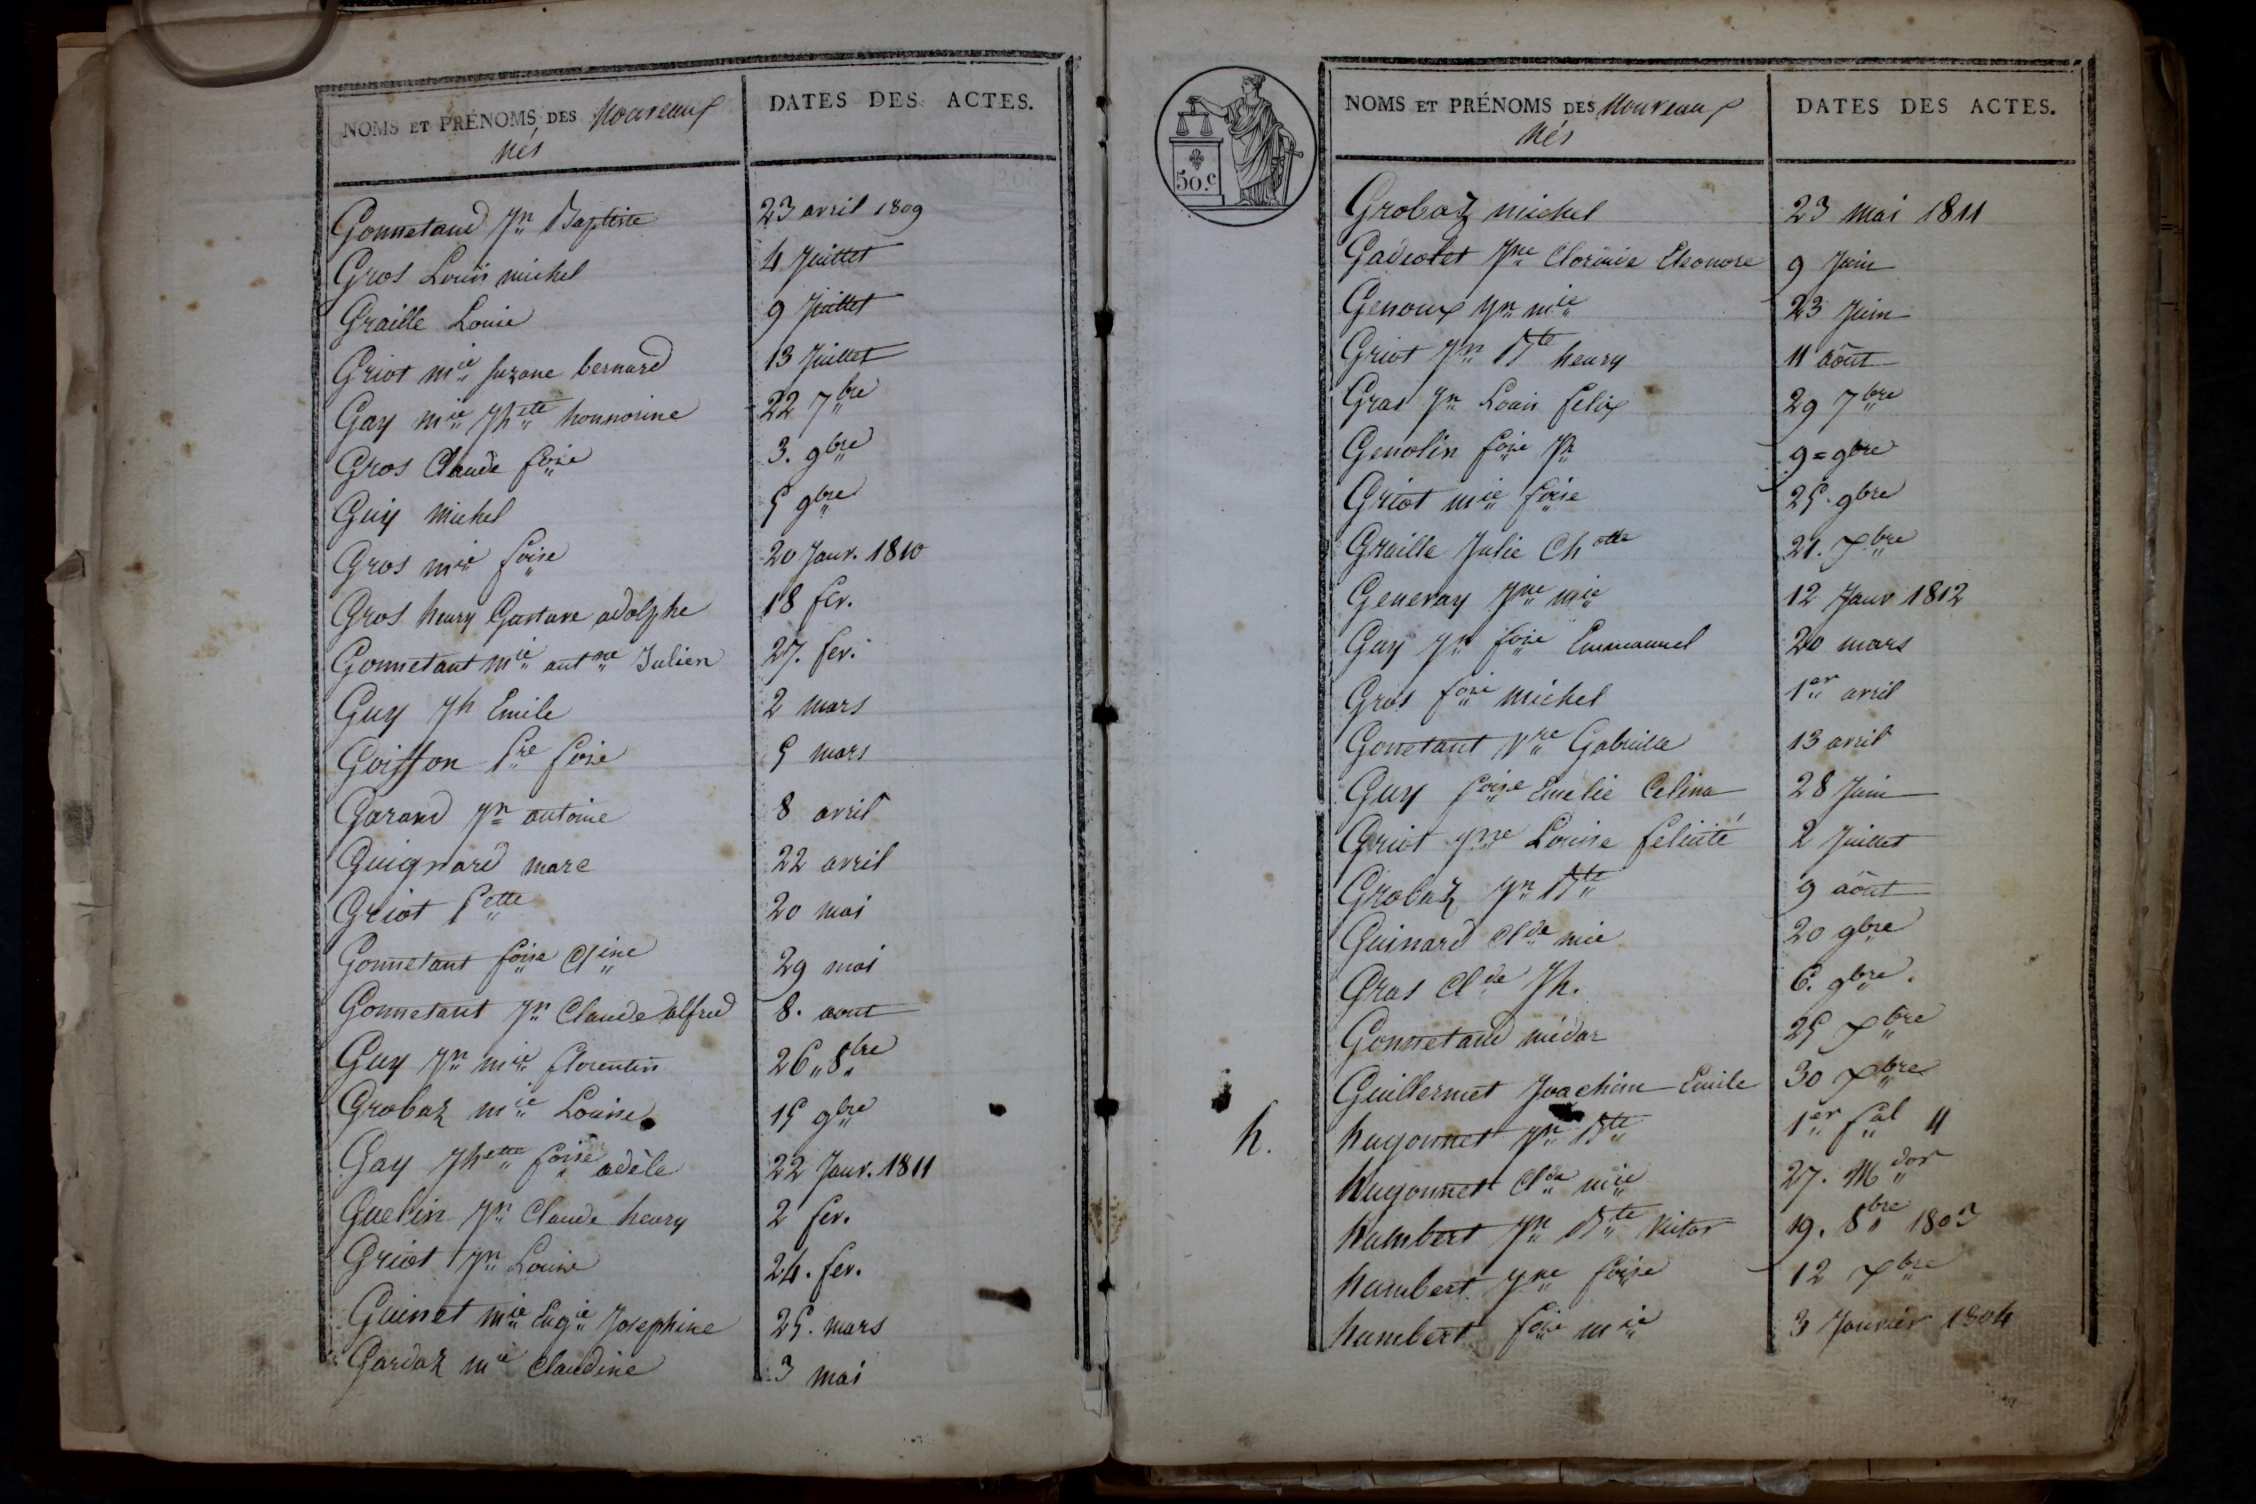 NOMS ET PRÉNOMS DES Nouveaux nés DATES DES ACTES.
Gonnetaud Jn Baptiste 23 avril 1809
Gros Louis michel 4 Juillet
Graille Louise 9 Juillet
Griot mie suzane bernard 13 Juillet
Gay mie Jhette honnorine 22 7bre
Gros Claude foise 3. 9bre
Guy michel 5 9bre
Gros mie foise 20 Janv. 1810
Gros henry Gustave adolphe 18 fev.
Gonnetant mie antne Julien 27. fev.
Guy Jh Emile 2 mars
Goiffon Pre foise 5 mars
Garand Jn antoine 8 avril
Guignard marc 22 avril
Griot Pette 20 mai
Gonnetant foise Cline 29 mai
Gonnetant Jn Claude alfred 8. aout
Guy Jn mie florentin 26 8bre
Grobaz mie Louise 15 9bre
Gay Jhette foise adèle 22 Janv. 1811
Guelin Jn Claude henry 2 fev.
Griot Jn Louis 24. fev.
Guinet mie Eugie Josephine 25. mars
Gardaz mie Claudine 3 mai
50.c
NOMS ET PRÉNOMS DES Nouveaux nés DATES DES ACTES.
Grobaz michel 23 mai 1811
Gadiolet Jne Clorinde Eleonore 9 Juin
Genoux Jn mie 23 Juin
Griot Jn Bte henry 11 août
Gras Jn Louis felix 29 7bre
Genolin foise Jn 9 = 9bre
Griot mie foise 25. 9bre
Graille Julie Chotte 21. Xbre
Generay Jne mie 12 Janv 1812
Gay Jn fois Emmanuel 20 mars
Gros fois michel 1er avril
Gonetant Pre Gabriela 13 avril
Guy foise Emelie Celina 28 Juin
Griot Jne Louise félicité 2 Juillet
Grobaz Jn Bte 9 août
Guinard Clde mie 20 9bre
Gras Clde Jh. 6. 9bre.
Gonnetand médar 25 Xbre
Guillermet Joachim Emile 30 Xbre
h. hugonnet Jn Bte 1er fal 11
hugonnet Clde mie 27. Mdor
humbert Jn Bte Victor 19. 8bre 1803
humbert Jne foise 12 Xbre
humbert foise mie 3 Janvier 1804